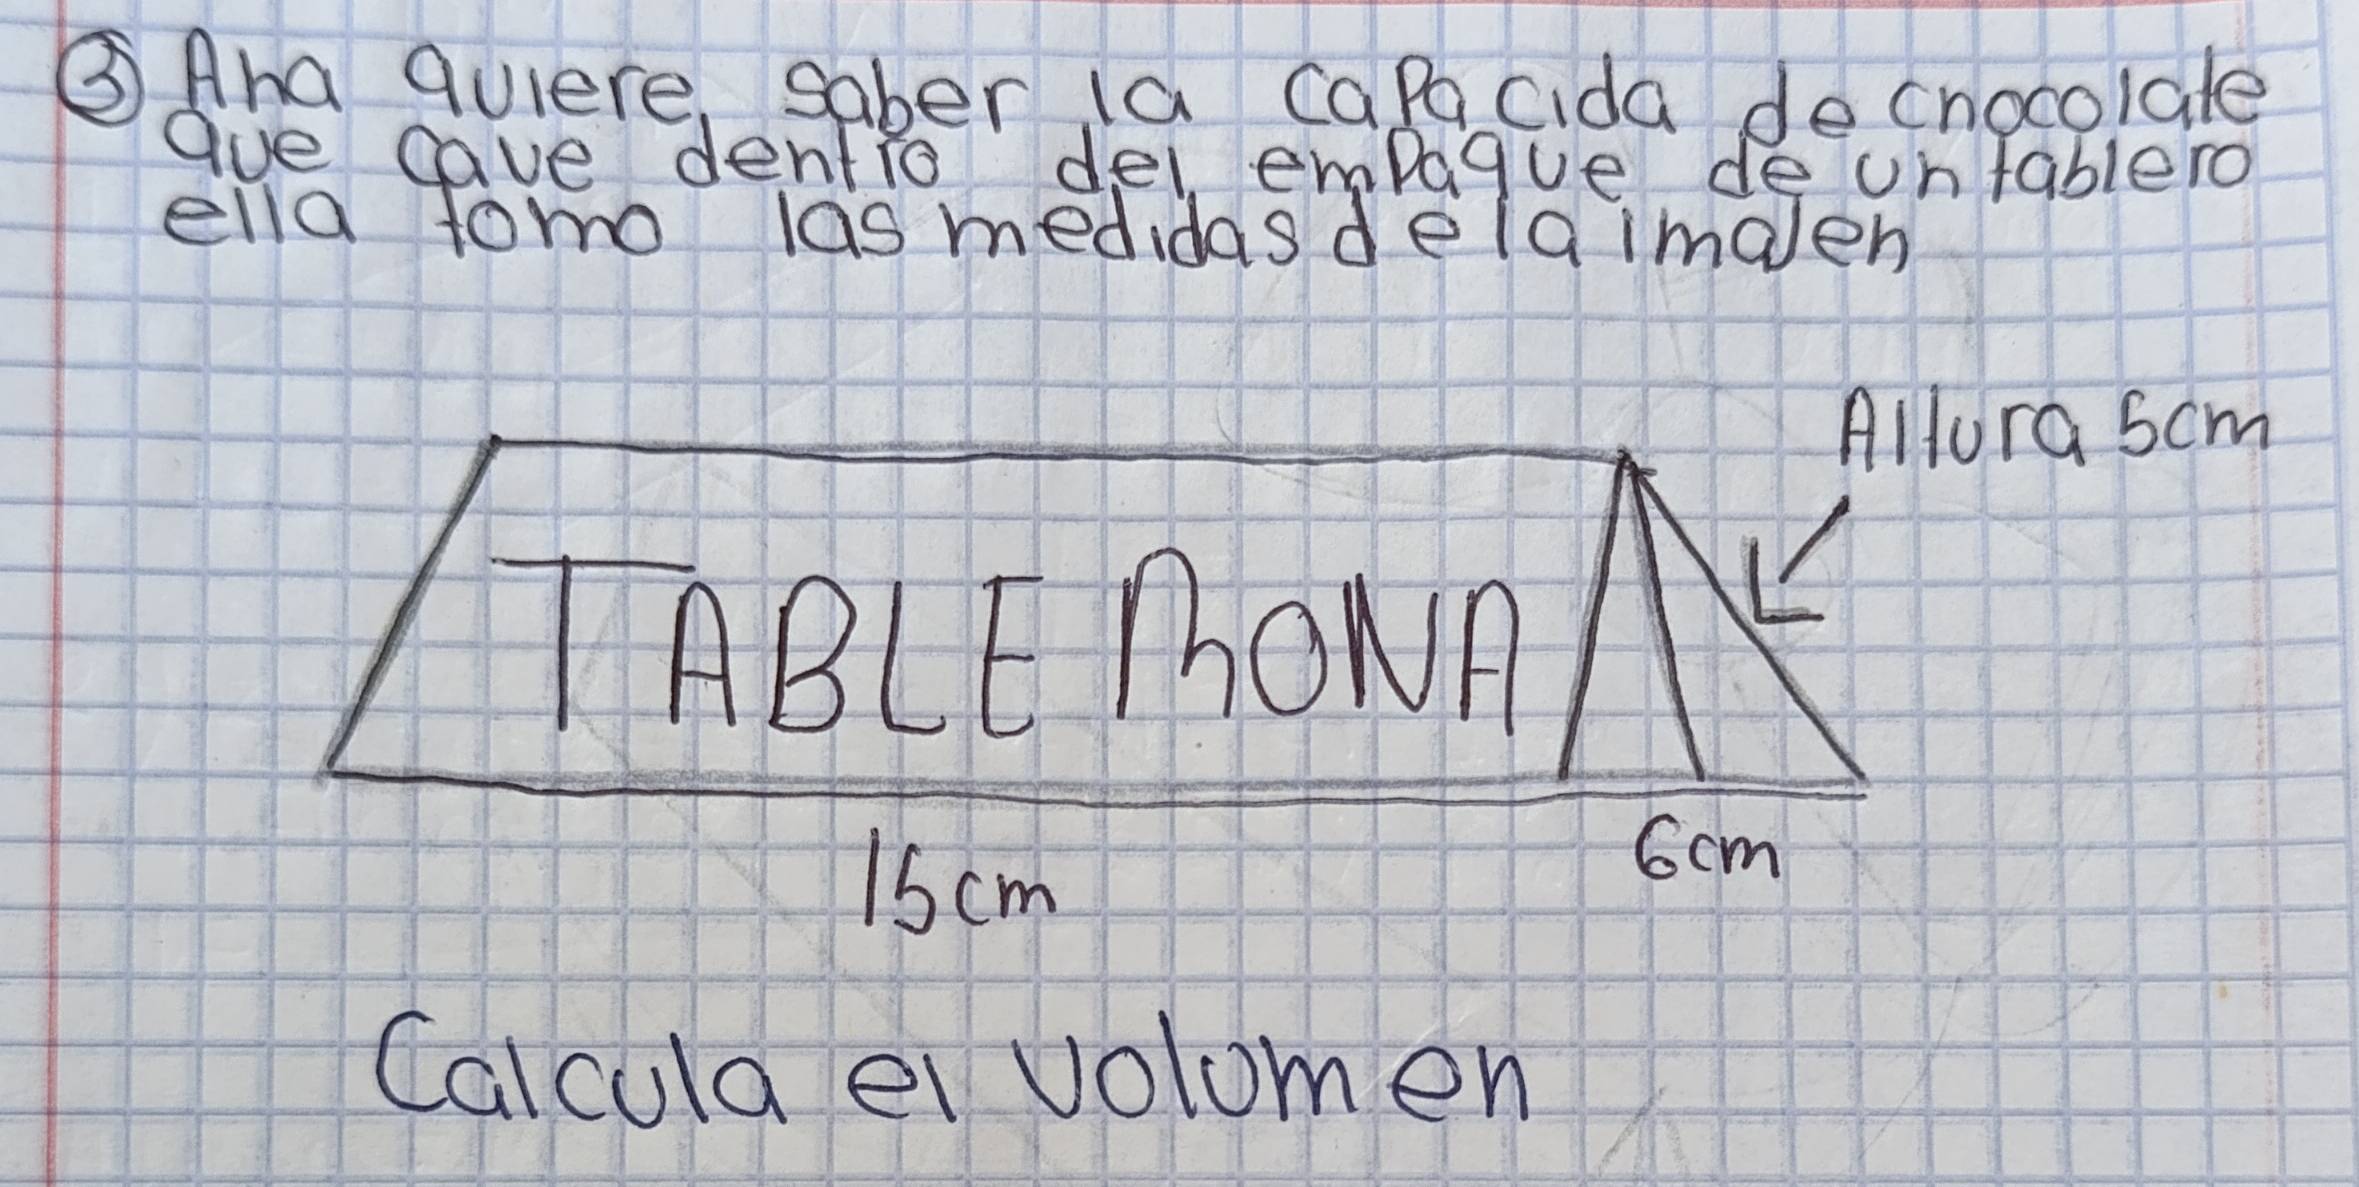 ③ Ana quiere saber la capacida de chocolate
que cave dentro del empaque de un tablero
ella tomo las medidas de la imajen
Altura 5cm
TABLERONA
15cm
6cm
Calcula el volumen